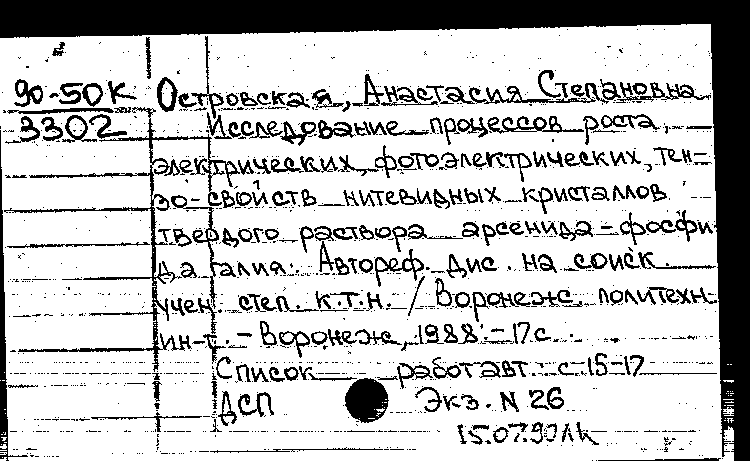 90-50К Островская, Анастасия Степановна
3302 Исследование процессов роста,
электрических, фотоэлектрических, тен-
зо-свойств нитевидных кристаллов
твердого раствора арсенида-фосфи
да галия. Автореф. дис. на соиск.
учен. степ. к.т.н. / Воронеж. политехн.
ин-т. - Воронеж, 1988. - 17 с.
Список работ авт.: с 15-17
ДСП Экз. N 26
15.07.90